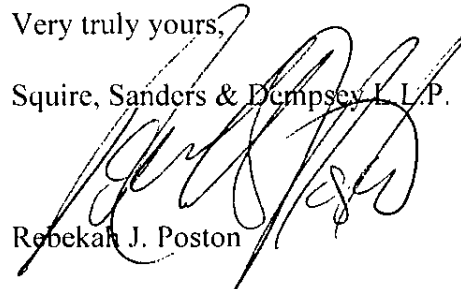 Very truly yours,
Squire, Sanders & Dempsey L.L.P.
Rebekah J. Poston